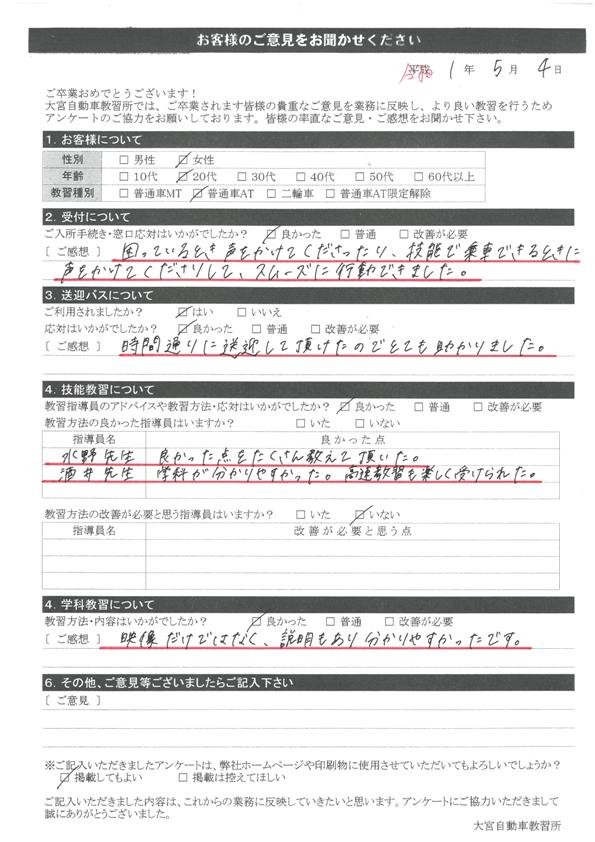 お客様のご意見をお聞かせください
平成 令和 1年 5月 4日
ご卒業おめでとうございます！
大宮自動車教習所では、ご卒業されます皆様の貴重なご意見を業務に反映し、より良い教習を行うため
アンケートのご協力をお願いしております。皆様の率直なご意見・ご感想をお聞かせ下さい。
1. お客様について
性別 □ 男性 ☑ 女性
年齢 □ 10代 ☑ 20代 □ 30代 □ 40代 □ 50代 □ 60代以上
教習種別 □ 普通車MT ☑ 普通車AT □ 二輪車 □ 普通車AT限定解除
2. 受付について
ご入所手続き・窓口応対はいかがでしたか？ ☑ 良かった □ 普通 □ 改善が必要
[ ご感想 ] 困っているとき声をかけてくださったり、技能で乗車できるときに
声をかけてくださりして、スムーズに行動できました。
3. 送迎バスについて
ご利用されましたか？ ☑ はい □ いいえ
応対はいかがでしたか？ ☑ 良かった □ 普通 □ 改善が必要
[ ご感想 ] 時間通りに送迎して頂けたのでとても助かりました。
4. 技能教習について
教習指導員のアドバイスや教習方法・応対はいかがでしたか？ ☑ 良かった □ 普通 □ 改善が必要
教習方法の良かった指導員はいますか？ □ いた □ いない
指導員名 良かった点
水野先生 良かった点をたくさん教えて頂いた。
酒井先生 学科が分かりやすかった。高速教習も楽しく受けられた。
教習方法の改善が必要と思う指導員はいますか？ □ いた ☑ いない
指導員名 改善が必要と思う点
4. 学科教習について
教習方法・内容はいかがでしたか？ ☑ 良かった □ 普通 □ 改善が必要
[ ご感想 ] 映像だけではなく、説明もあり分かりやすかったです。
6. その他、ご意見等ございましたらご記入下さい
[ ご意見 ]
※ご記入いただきましたアンケートは、弊社ホームページや印刷物に使用させていただいてもよろしいでしょうか？
☑ 掲載してもよい □ 掲載は控えてほしい
ご記入いただきました内容は、これからの業務に反映していきたいと思います。アンケートにご協力いただきまして
誠にありがとうございました。
大宮自動車教習所